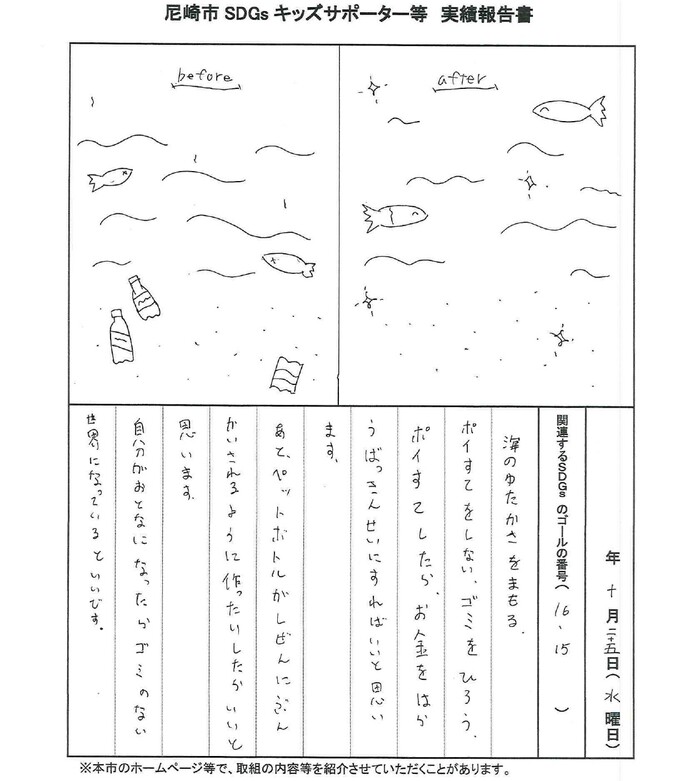 尼崎市 SDGs キッズサポーター等 実績報告書
before
after
年 十月二十五日(水曜日)
関連するSDGsのゴールの番号( 16、15 )
海のゆたかさをまもる.
ポイすてをしない、ゴミをひろう、
ポイすてしたら、お金をはら
うばっきんせいにすればいいと思い
ます。
あと、ペットボトルがしぜんにぶん
かいされるように作ったいしたらいいと
思います。
自分がおとなになったらゴミのない
世界になっているといいです。
※本市のホームページ等で、取組の内容等を紹介させていただくことがあります。